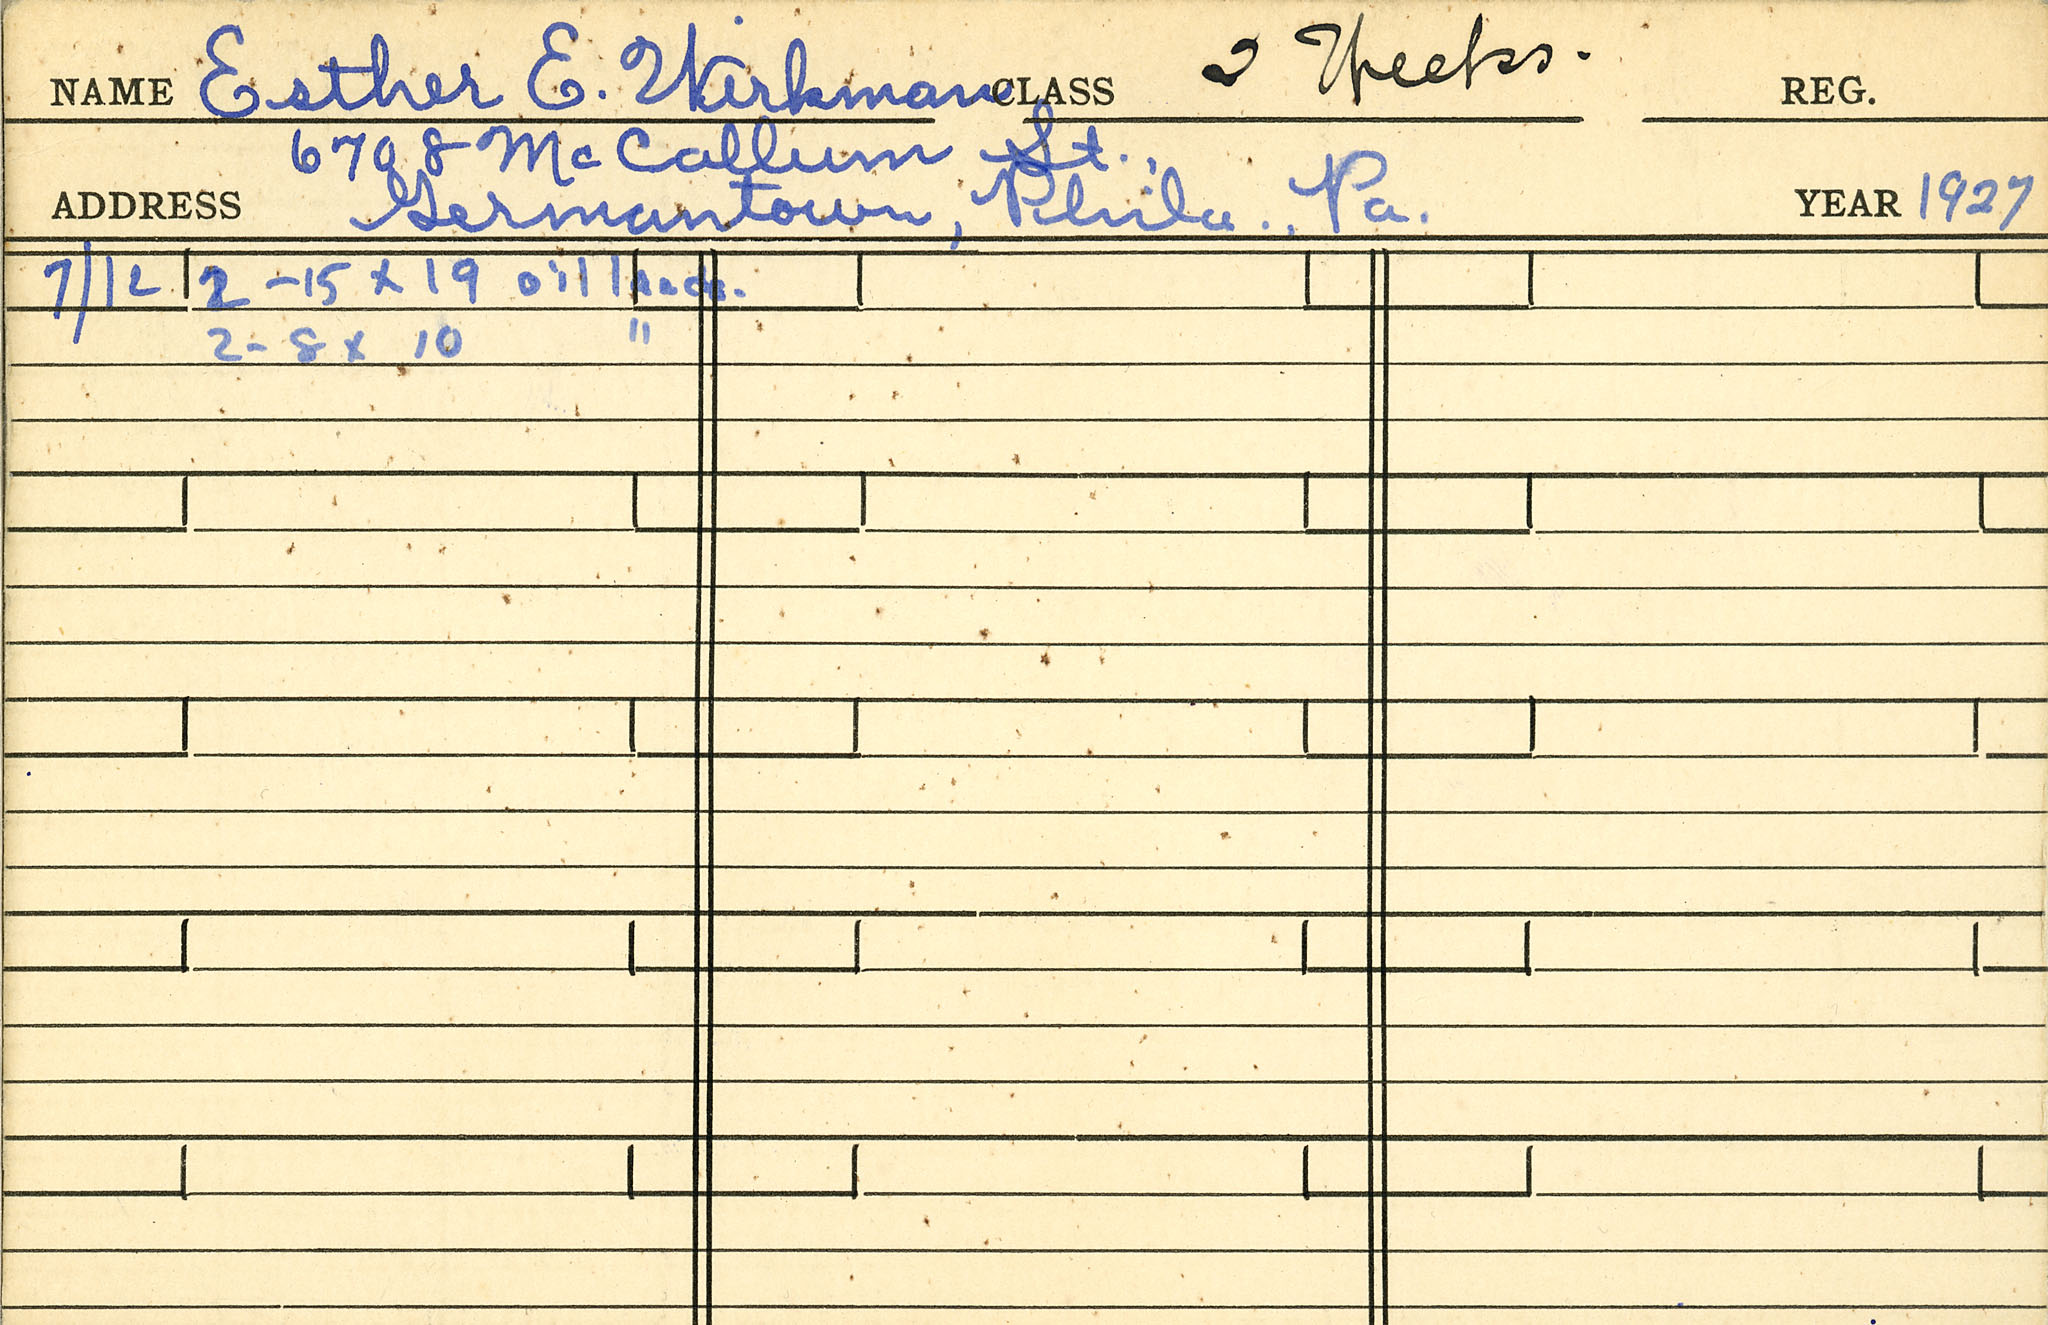 NAME Esther E. Wirkman CLASS 2 Weeks. REG.
6708 McCallum St.,
ADDRESS Germantown, Phila., Pa. YEAR 1927
7/12 2 - 15 x 19 oil
2 - 8 x 10 "